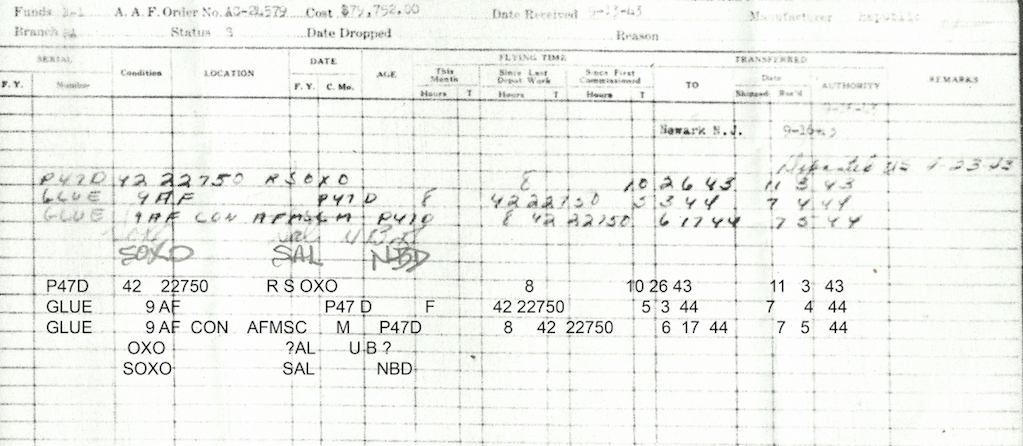 Funds A. A. F. Order No. AC-24579 Cost $79,752.00 Date Received 9-13-43 Manufacturer Republic
Branch Status 3 Date Dropped Reason
SERIAL DATE FLYING TIME TRANSFERRED
Condition LOCATION AGE This Month Since Last Depot Work Since First Commissioned TO Date AUTHORITY REMARKS
F. Y. Number F. Y. C. Mo. Hours T Hours T Hours T Shipped Rec'd
Newark N.J. 9-16-43
Departed US 9-23-43
P47D 42 22750 R S OXO 8 10 26 43 11 3 43
GLUE 9 AF P47 D 8 42 22750 5 3 44 7 4 44
GLUE 9AF CON AFMSC M P47D 8 42 22750 6 17 44 7 5 44
SOXO SAL NBD
P47D 42 22750 R S OXO 8 10 26 43 11 3 43
GLUE 9 AF P47 D F 42 22750 5 3 44 7 4 44
GLUE 9 AF CON AFMSC M P47D 8 42 22750 6 17 44 7 5 44
OXO ?AL U B ?
SOXO SAL NBD